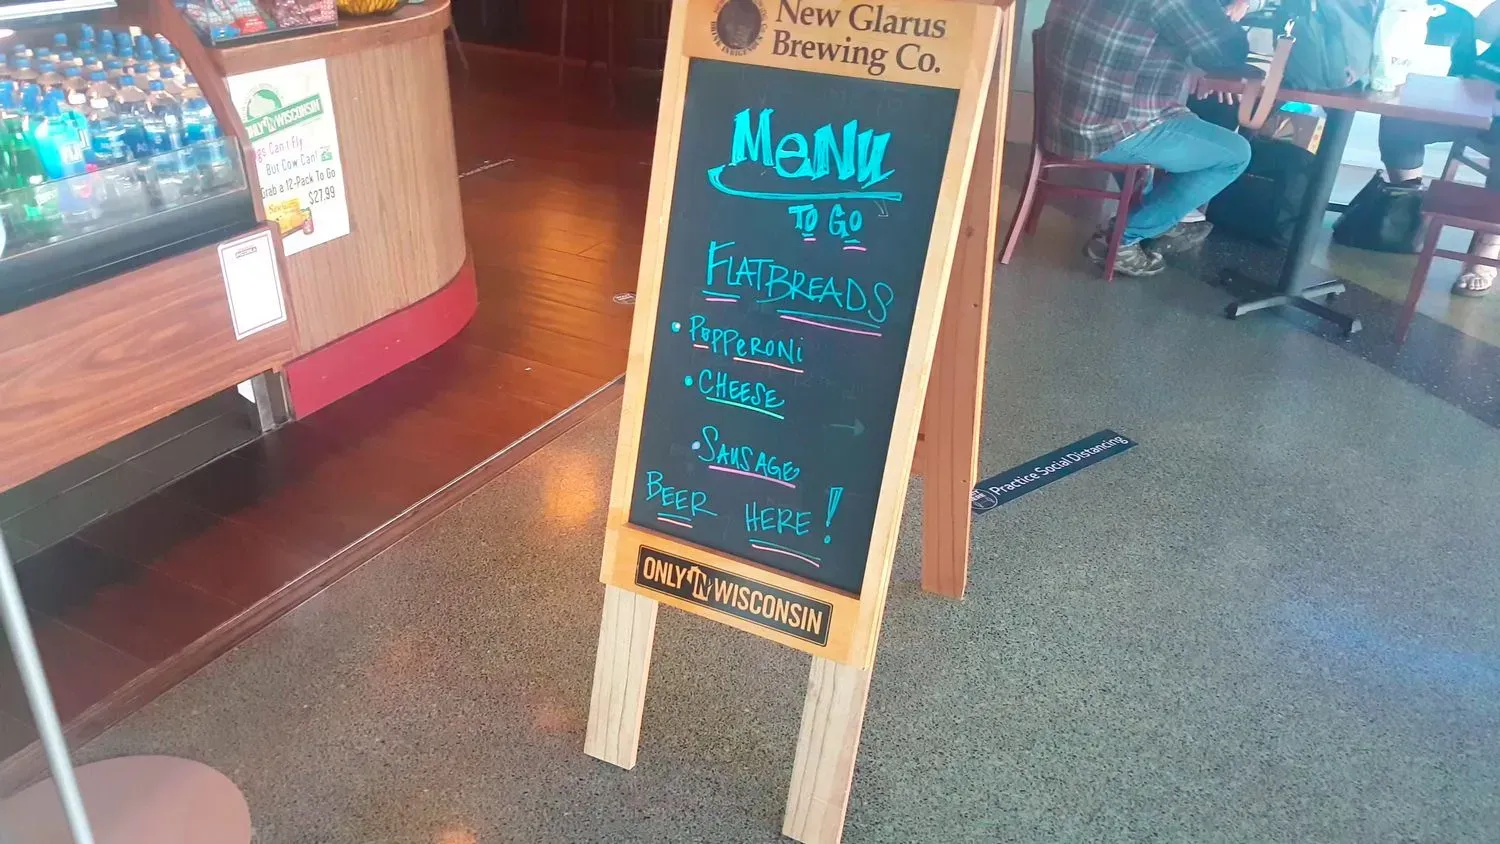 New Glarus
Brewing Co.
Menu
To Go
Flatbreads
• Pepperoni
• Cheese
• Sausage
Beer Here!
ONLY IN WISCONSIN
ONLY IN WISCONSIN
Can't Fly
But Cow Can!
Grab a 12-Pack To Go
$27.99
Practice Social Distancing